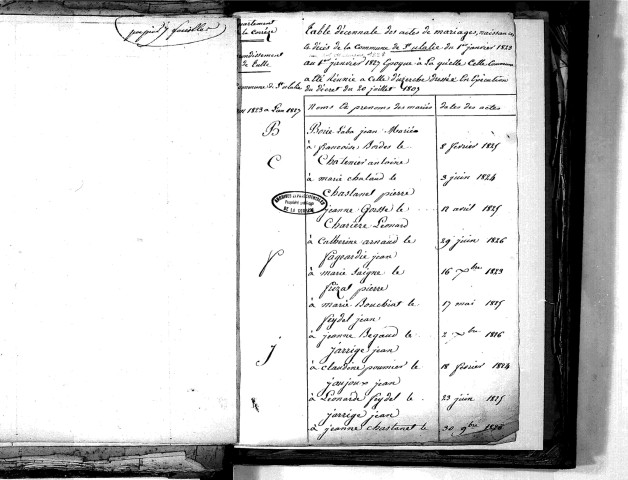 papier 7 feuilles
département
de la corrèze
arrondissement
de Tulle
Commune de St ulalie
1823 à 1827
Table décennale des actes de mariages, naissances
& décès de la Commune de St ulalie du 1er janvier 1823
au 1er janvier 1827 Epoque à La quelle Cette Commune
a été Réunie a Celle d'uzerche Dressée En Exécution
du décret du 20 juillet 1807
Noms Et prenoms des mariés
dates des actes
B
jean Mariée
à françoise Bordes le
8 février 1825
C
Chalenier antoine
à marie chaland le
3 juin 1824
Chastanet pierre
ARCHIVES
DE LA CORRÈZE
jeanne Gorsse le
12 avril 1825
Charière Léonard
à Catherine arnaud le
29 juin 1826
F
fageardie jean
à marie saigne le
16 Xbre 1823
frézat pierre
à marie Bouchiat le
17 mai 1825
feydel jean
à jeanne Begaud le
2 Xbre 1826
J
jarrige jean
à claudine poumier le
18 février 1824
jaujoux jean
à Léonarde feydel le
23 juin 1825
jarrige jean
à jeanne chastanet le
30 9bre 1826